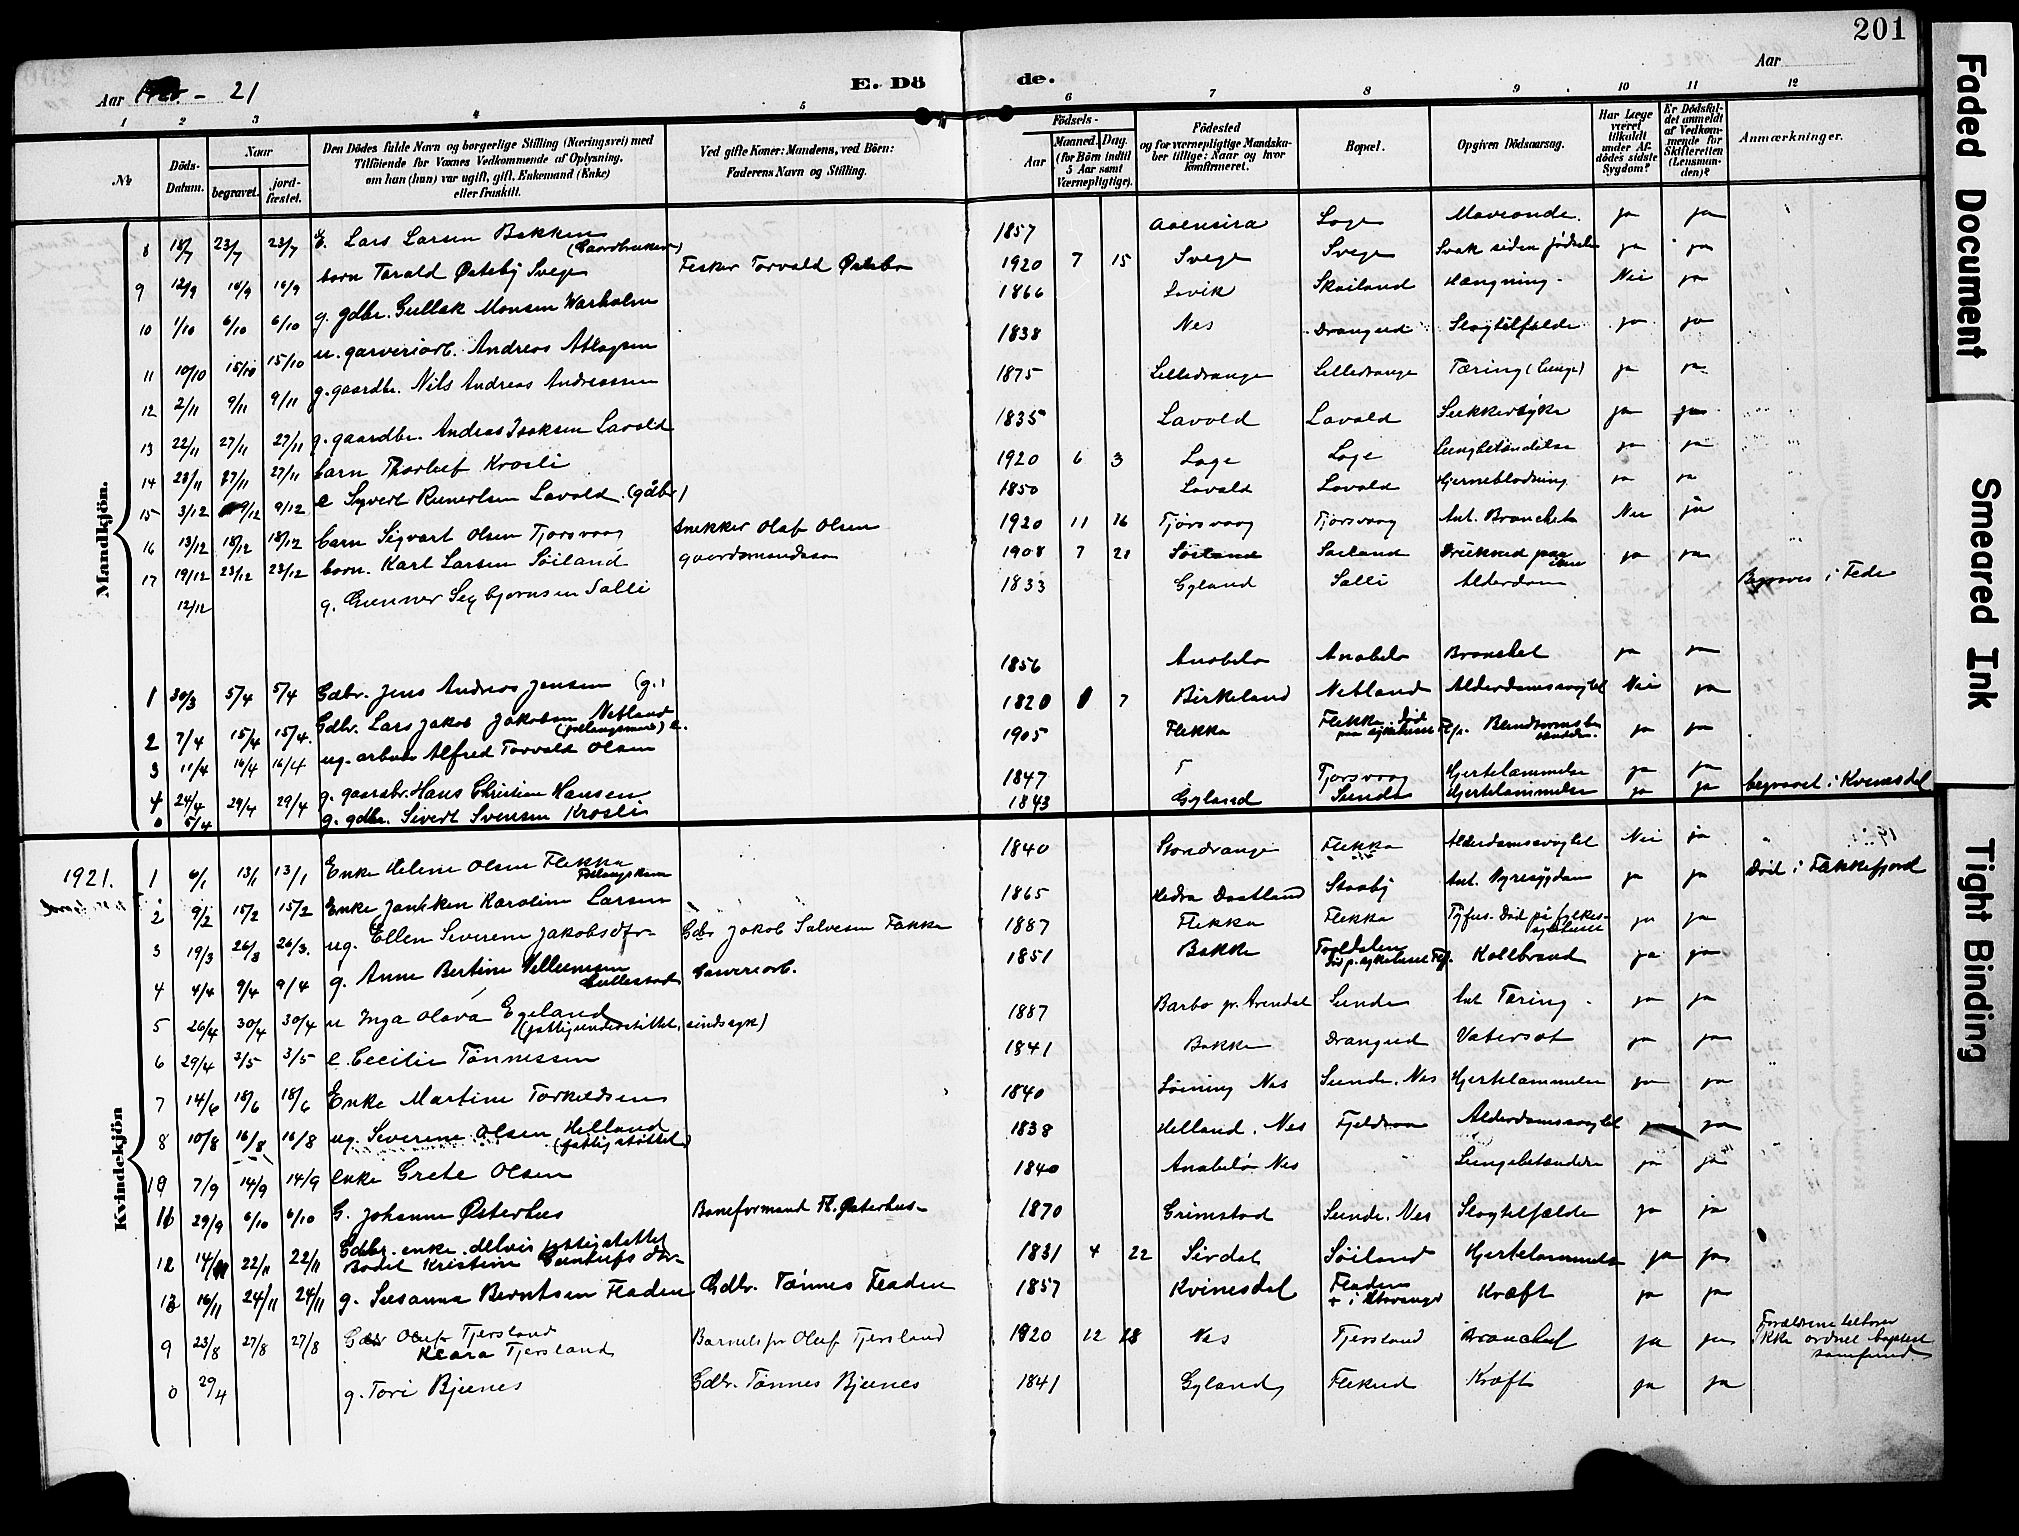 201
Aar 1920 - 21
E. Dö de.
Aar
1 2 3 4 5 6 7 8 9 10 11 12
№
Döds-Datum.
Naar
begravet.
jordfæstet.
Den Dödes fulde Navn og borgerlige Stilling (Næringsvei) med
Tilföiende for Voxnes Vedkommende af Oplysning,
om han (hun) var ugift, gift, Enkemand (Enke)
eller fraskilt.
Ved gifte Koner: Mandens, ved Börn:
Faderens Navn og Stilling.
Födsels-
Aar
Maaned. Dag.
(for Börn indtil
5 Aar samt
Værnepligtige).
Födested
og for værnepligtige Mandska-
ber tillige: Naar og hvor
konfirmeret.
Bopæl.
Opgiven Dödsaarsag.
Har Læge
været
tilkaldt
under Af-
dödes sidste
Sygdom?
Er Dödsfal-
det anmeldt
af Vedkom-
mende for
Skifteretten
(Lensman-
den)?
Anmærkninger.
Mandkjön.
8 18/7 23/7 23/7 E. Lars Larsen Bakken (Gaardbruker) 1857 Aaensira Loge ja ja
9 12/9 16/9 16/9 barn Torald Østebø Svege Fisker Torvald Østebø 1920 7 15 Svege Svege Svak siden fødselen ja ja
10 1/10 6/10 6/10 g. gdbr. Gullak Monsen Warholm 1866 Lavik Skailand Hængning. Nei ja
11 10/10 15/10 15/10 u. garveriarb. Andreas Atlagsen 1838 Nes Drangeid Slagtilfælde ja ja
12 2/11 9/11 9/11 g. gaardbr. Nils Andreas Andreassen 1875 Lilledrange Lilledrange Tæring (lunge) ja ja
13 22/11 27/11 27/11 g. gaardbr. Andreas Isaksen Lavold 1835 Lavold Lavold Sukkersyke ja ja
14 23/11 27/11 27/11 barn Thorleif Krosli 1920 6 3 Loge Loge Lungbetændelse ja ja
15 3/12 9/12 9/12 e Syvert Reinertsen Lavold (gdbr) 1850 Lavold Lavold Hjerneblødning ja ja
16 13/12 18/12 18/12 barn Sigvart Olsen Tjorsvaag Snekker Olaf Olsen 1920 11 16 Tjørsvaag Tjorsvaag Ant. Bronchit Nei ja
17 19/12 23/12 23/12 barn. Karl Larsen Søiland gaardmandssøn 1908 7 21 Søiland Søiland Drukned paa isen ja ja
12/12 g. Gunner Sigbjørnsen Salli 1833 Gyland Salli Alderdom Begraves i Fede
1 30/3 5/4 5/4 Gdbr. Jens Andreas Jensen (g.) 1856 Anabelø Anabelø Bronchit ja ja
2 7/4 15/4 15/4 Gdbr. Lars Jakob Jakobsen Netland e. 1820 7 Birkeland Netland Alderdomssvaghet Nei ja
3 11/4 16/4 16/4 ug. arbeider Alfred Torvald Olsen 1905 Flekka Flekka. død paa sykehuset Flf. ja ja
4 24/4 29/4 29/4 g. gaardbr. Hans Christian Hansen 1847 Tjorsvaag Hjertelammelse ja ja
0 5/4 g. gdbr. Sivert Svensen Krosli 1843 Gyland Sunde Hjertelammelse ja ja begravet i Kvinesdal
Kvindekjön
1921.
1 6/1 13/1 13/1 Enke Helene Olsen Flekka 1840 Stordrange Flekka Alderdomssvaghet Nei ja
2 9/2 15/2 15/2 Enke Janikken Karoline Larsen 1865 Hedra Daatland Staaby Ant. Nyresygdom ja ja Död i Fækkefjord
3 19/3 26/3 26/3. ug. Ellen Severine Jakobsdtr Gdbr Jakob Salvesen Fækka 1887 Flekka Flekka Tyfus. Død på fylkes-sykehuset ja ja
4 4/4 9/4 9/4 g. Anne Bertine Villumsen Gullestad Garveriarb. 1851 Bakke Koldbrand ja ja
5 26/4 30/4 30/4 u Inga Olava Egeland (fattigunderstøttet, sindssyk) 1887 Barbo pr. Arendal Sunde Ant Tæring. ja ja
6 29/4 3/5 3/5 e. Cecilie Tønnessen 1841 Bakke Drangeid Vatersot ja ja
7 14/6 18/6 18/6 Enke Martine Torkeldsen 1840 Løining Nes Sunde, Nes Hjertelammelse ja ja
8 10/8 16/8 16/8 ug. Severine Olsen Helland (fattigstøttet) 1838 Helland, Nes Fjeldsaa Alderdomssvaghet ja ja
10 7/9 14/9 14/9 enke Grete Olsen 1840 Anabelø Nes Lungebetændelse ja ja
11 29/9 6/10 6/10 G. Johanne Østerhus Baneformand Fl. Østerhus 1870 Grimstad Sunde, Nes Slagtilfælde ja ja
12 14/11 22/11 22/11 Gdbr. enke delvis fattigstøttet Bodil Kristine Gundufsdtr 1831 4 22 Sirdal Søiland Hjertelammelse ja ja
13 16/11 24/11 24/11 g. Susanna Berntsen Fladen Gdbr. Tønnes Fladen 1857 Kvinesdal Fladen + i Stavanger Kræft ja ja
9 23/8 27/8 27/8 Gdbr Oluf Tjersland Klara Tjersland Barnets far Oluf Tjersland 1920 12 18 Nes Tjersland Bronchit ja ja Forældrene tilhører ikke ordnet baptist samfund.
0 29/4 g. Tori Bjunes Gdbr. Tønnes Bjunes 1841 Gyland Flikeid Kræft ja ja
Faded Document
Smeared Ink
Tight Binding